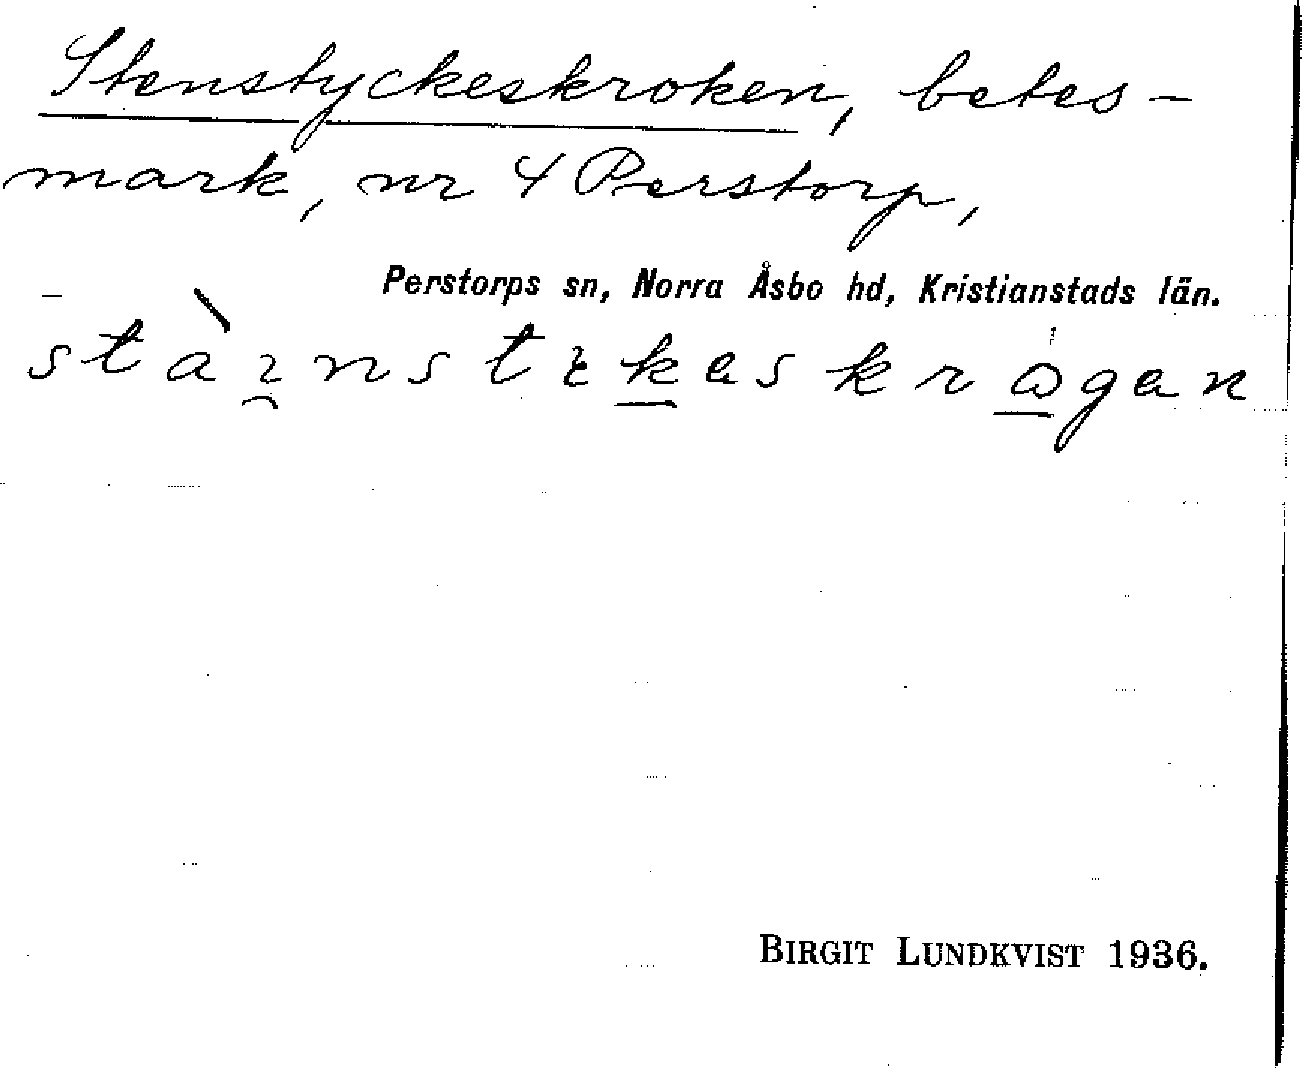 Stenstyckeskroken, betes-
mark, nr 4 Perstorp,
Perstorps sn, Norra Åsbo hd, Kristianstads län.
BIRGIT LUNDKVIST 1936.